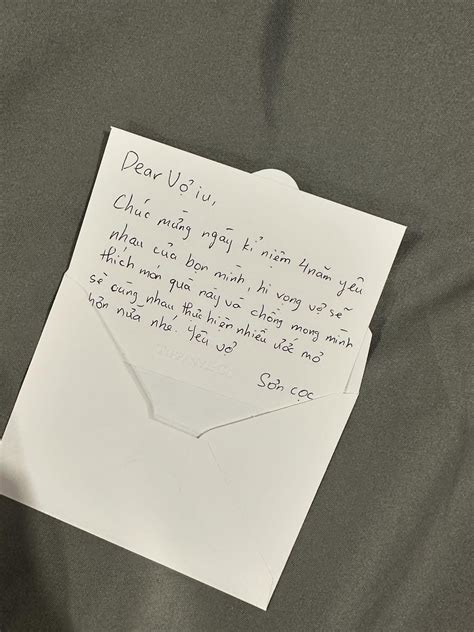 Dear Vợ iu,
Chúc mừng ngày kỉ niệm 4 năm yêu
nhau của bọn mình, hi vọng vợ sẽ
thích món quà này và chồng mong mình
sẽ cùng nhau thực hiện nhiều ước mơ
hơn nữa nhé. Yêu vợ
Sơn cọc